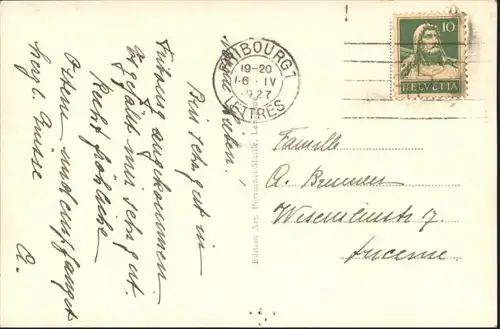 Bin sehr gut in
Fribourg angekommen
Es gefällt mir sehr gut.
Recht fröhliche
Ostern und empfanget
herzl. Grüsse
A.
FRIBOURG 1
19-20
6 · IV
1927
LETTRES
10
HELVETIA
Familie
A. Brunner
7
Lucerne
Edition Art. Perrochet-Matile,